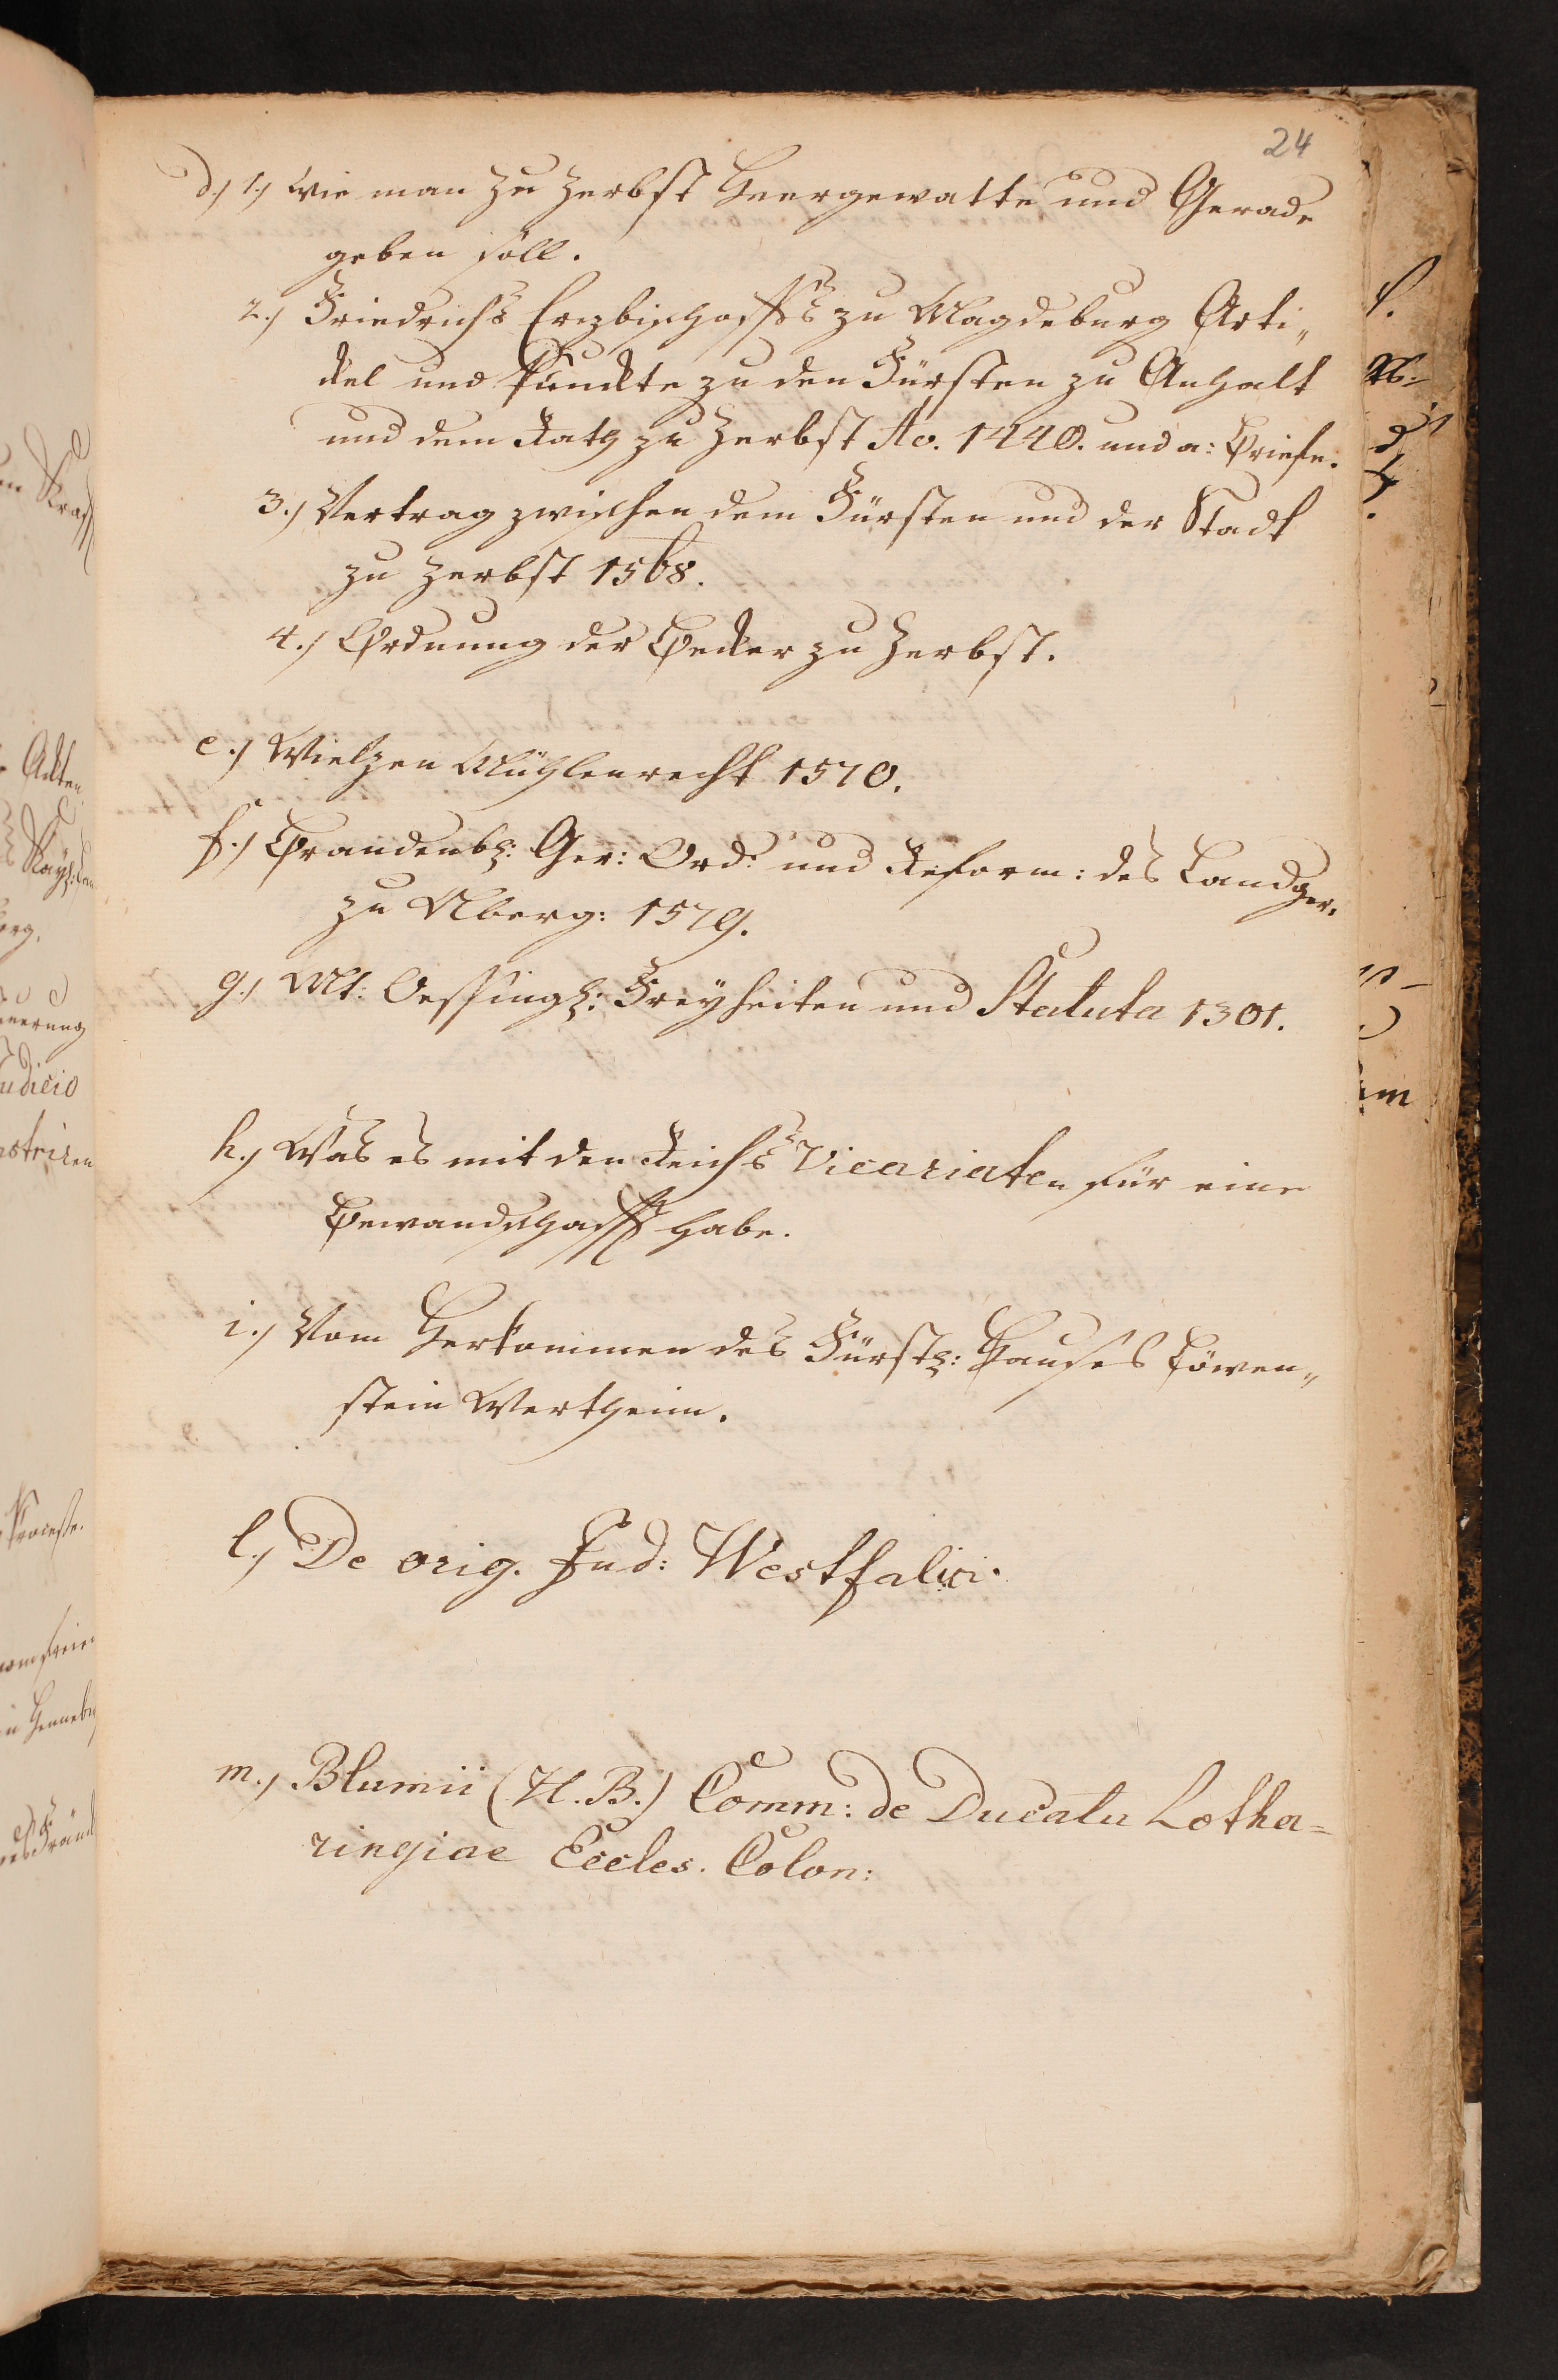 24
d.) 1.) Wie man zu Zerbst Heergewatte und Gerade
geben soll.
2.) Friedrichs Erzbischoffs zu Magdeburg Arti„
ckel und Punckte zu den Fürsten zu Anhalt
und dem Rath zu Zerbst Ao. 1440. und a: Briefe.
3.) Vertrag zwischen dem Fürsten und der Stadt
zu Zerbst 1568.
4.) Ordnung der Becker zu Zerbst.
e.) Mühlenrecht 1570.
f.) Brandenb: Ger: Ord: und Reform: des Landger.
zu Nberg: 1579.
g.) Mt: Freyheiten und Statuta 1301.
h.) Was es mit den Reichs Vicariaten für eine
Bewandschafft habe.
i.) Vom Herkommen des Fürstl: Hauses Löwen„
stein Wertheim.
l.) De orig. Jud: Westfalici.
m.) Blumii (H. B.) Comm: de Ducatu Lotha=
ringiae Eccles. Colon: